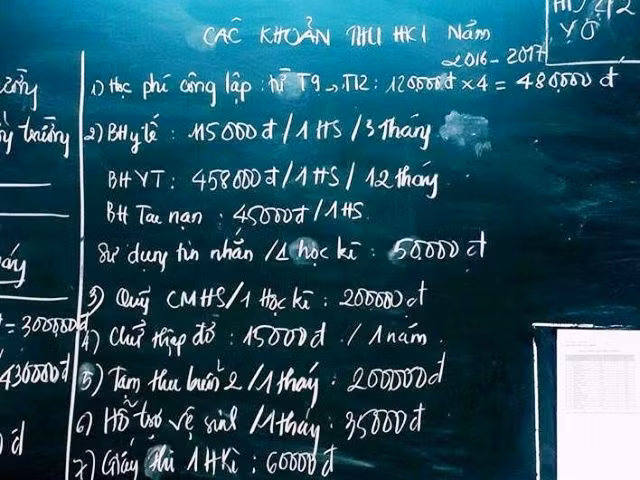 CÁC KHOẢN THU HKI Năm
2016-2017
1) Học phí công lập : từ T9 → T12 : 120000đ x 4 = 480,000 đ
2) BH y tế : 115000đ / 1 HS / 3 tháng
BHYT : 458000đ / 1 HS / 12 tháng
BH Tai nạn : 45000đ / 1HS
Sử dụng tin nhắn / 1 học kì : 50000 đ
3) Quỹ CMHS / 1 Học kì : 200000 đ
4) Chữ thập đỏ : 15000đ / 1 năm
5) Tạm thu buổi 2 / 1 tháng : 200000đ
6) Hỗ trợ vệ sinh / 1 tháng : 35000đ
7) Giấy thi 1 HKì : 60000đ
trường
= 300000đ
430000đ
đ